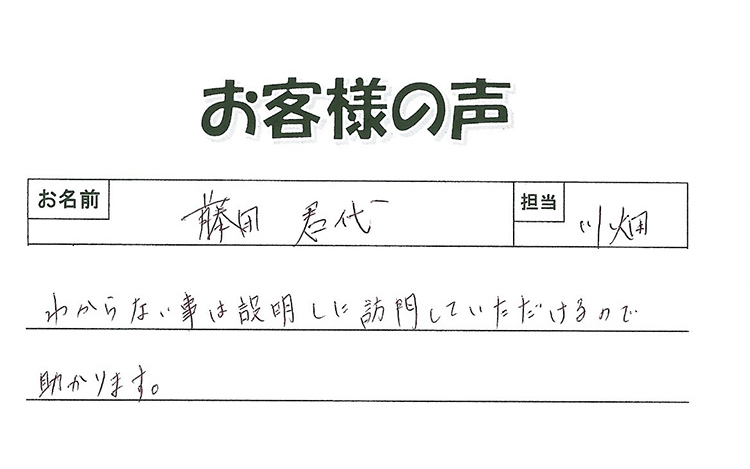 お客様の声
お名前 藤田 君代 担当 川畑
わからない事は説明しに訪問していただけるので
助かります。